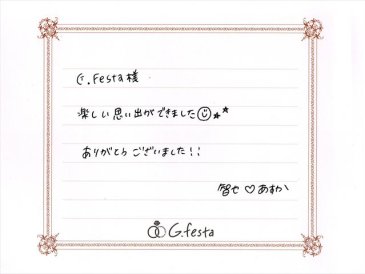 G.Festa様
楽しい思い出ができました☺★★
ありがとうございました!!
智也♡あすか
G.festa